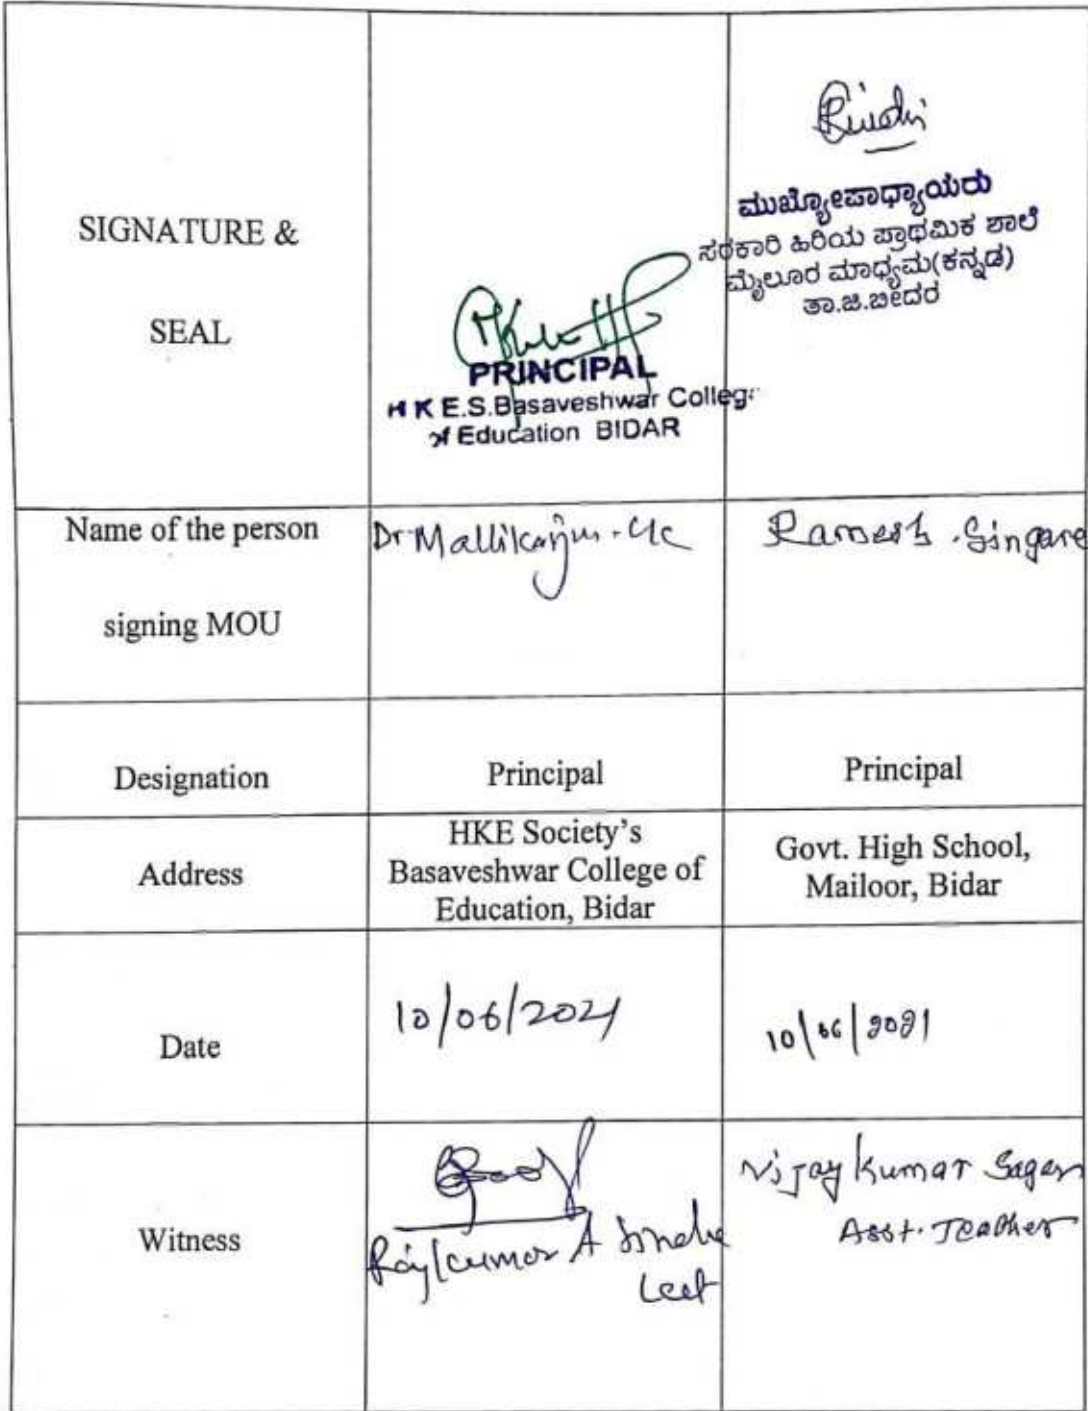 SIGNATURE &
SEAL
PRINCIPAL
H K E.S.Basaveshwar College
of Education BIDAR
ಮುಖ್ಯೋಪಾಧ್ಯಾಯರು
ಸರಕಾರಿ ಹಿರಿಯ ಪ್ರಾಥಮಿಕ ಶಾಲೆ
ಮೈಲೂರ ಮಾಧ್ಯಮ(ಕನ್ನಡ)
ತಾ.ಜಿ.ಬೀದರ
Name of the person
signing MOU
Dr Mallikarjun
Ramesh . Singare
Designation
Principal
Principal
Address
HKE Society's
Basaveshwar College of
Education, Bidar
Govt. High School,
Mailoor, Bidar
Date
10/06/2021
10/06/2021
Witness
Rajkumar A
Vijaykumar Sagar
Asst. Teacher